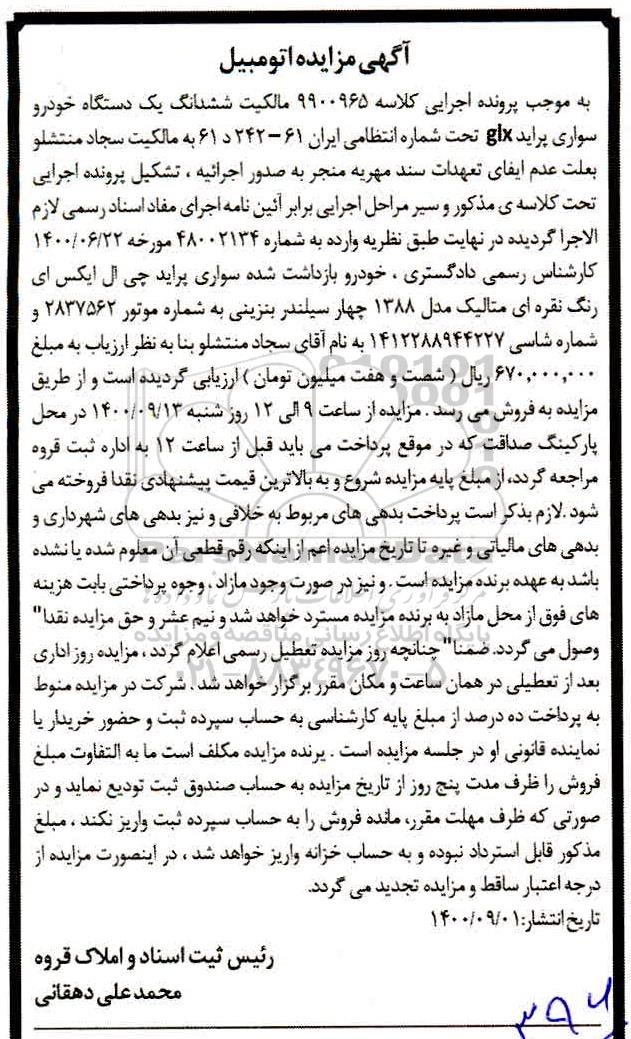 آگهی مزایده اتومبیل
به موجب پرونده اجرایی کلاسه ۹۹۰۰۹۶۵ مالکیت ششدانگ یک دستگاه خودرو
سواری پراید glx تحت شماره انتظامی ایران ۶۱ – ۲۴۲ د ۶۱ به مالکیت سجاد منتشلو
بعلت عدم ایفای تعهدات سند مهریه منجر به صدور اجرائیه ، تشکیل پرونده اجرایی
تحت کلاسه ی مذکور و سیر مراحل اجرایی برابر آئین نامه اجرای مفاد اسناد رسمی لازم
الاجرا گردیده در نهایت طبق نظریه وارده به شماره ۴۸۰۰۲۱۳۴ مورخه ۱۴۰۰/۰۶/۲۲
کارشناس رسمی دادگستری ، خودرو بازداشت شده سواری پراید جی ال ایکس ای
رنگ نقره ای متالیک مدل ۱۳۸۸ چهار سیلندر بنزینی به شماره موتور ۲۸۳۷۵۶۲ و
شماره شاسی ۱۴۱۲۲۸۸۹۴۴۲۲۷ به نام آقای سجاد منتشلو بنا به نظر ارزیاب به مبلغ
۶۷۰,۰۰۰,۰۰۰ ریال ( شصت و هفت میلیون تومان ) ارزیابی گردیده است و از طریق
مزایده به فروش می رسد . مزایده از ساعت ۹ الی ۱۲ روز شنبه ۱۴۰۰/۰۹/۱۳ در محل
پارکینگ صداقت که در موقع پرداخت می باید قبل از ساعت ۱۲ به اداره ثبت قروه
مراجعه گردد، از مبلغ پایه مزایده شروع و به بالاترین قیمت پیشنهادی نقدا فروخته می
شود .لازم بذکر است پرداخت بدهی های مربوط به خلافی و نیز بدهی های شهرداری و
بدهی های مالیاتی و غیره تا تاریخ مزایده اعم از اینکه رقم قطعی آن معلوم شده یا نشده
باشد به عهده برنده مزایده است . و نیز در صورت وجود مازاد ، وجوه پرداختی بابت هزینه
های فوق از محل مازاد به برنده مزایده مسترد خواهد شد و نیم عشر و حق مزایده نقدا"
وصول می گردد. ضمنا" چنانچه روز مزایده تعطیل رسمی اعلام گردد ، مزایده روز اداری
بعد از تعطیلی در همان ساعت و مکان مقرر برگزار خواهد شد . شرکت در مزایده منوط
به پرداخت ده درصد از مبلغ پایه کارشناسی به حساب سپرده ثبت و حضور خریدار یا
نماینده قانونی او در جلسه مزایده است . برنده مزایده مکلف است ما به التفاوت مبلغ
فروش را ظرف مدت پنج روز از تاریخ مزایده به حساب صندوق ثبت تودیع نماید و در
صورتی که ظرف مهلت مقرر، مانده فروش را به حساب سپرده ثبت واریز نکند ، مبلغ
مذکور قابل استرداد نبوده و به حساب خزانه واریز خواهد شد ، در اینصورت مزایده از
درجه اعتبار ساقط و مزایده تجدید می گردد.
تاریخ انتشار: ۱۴۰۰/۰۹/۰۱
رئیس ثبت اسناد و املاک قروه
محمدعلی دهقانی